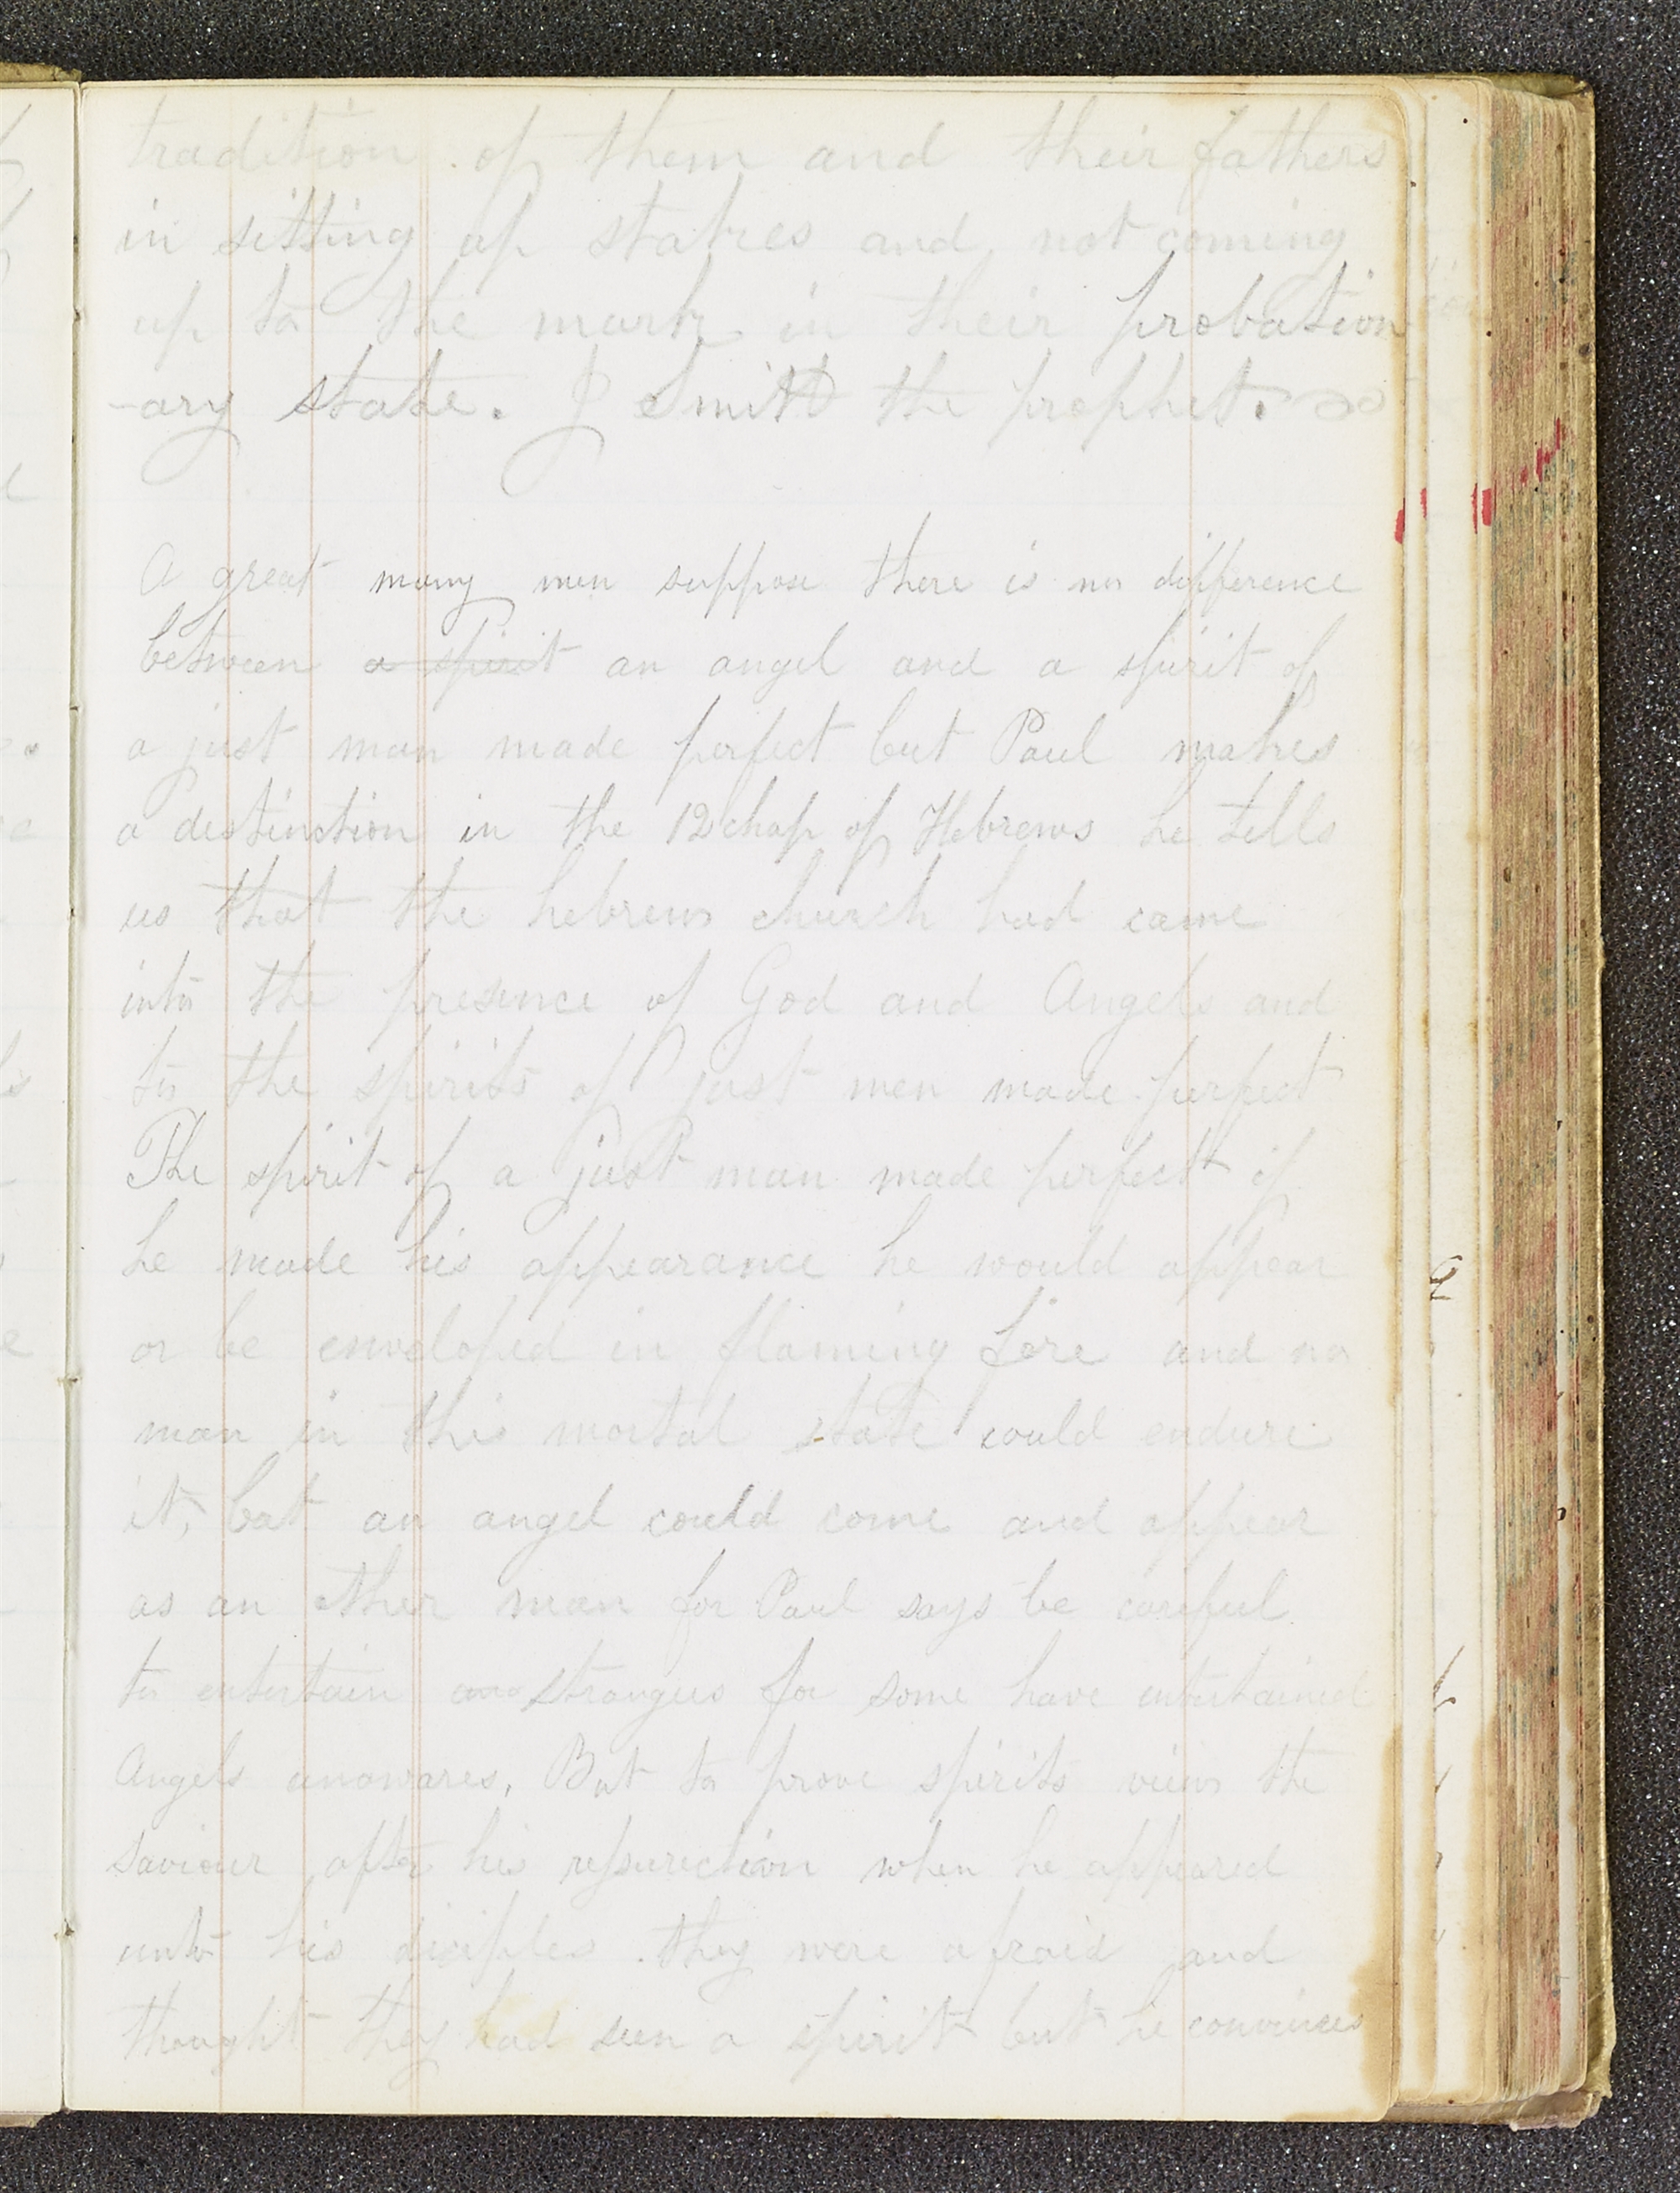 tradition of them and their fathers
in sitting up statues and not coming
up to the mark in their probation
-ary state. J Smith the prophet.
A great many men suppose there is no difference
between a spirit an angel and a spirit of
a just man made perfect but Paul makes
a destinction in the 12 chap of Hebrews he tells
us that the hebrew church had came
into the presence of God and Angels and
to the spirits of just men made perfect
The spirit of a just man made perfect if
he made his appearance he would appear
or be enveloped in flaming fire and no
man in this mortal state could endure
it, but an angel could come and appear
as an other man for Paul says be careful
to entertain strangers for some have entertained
Angels unawares, But to prove spirits view the
saviour after his resurection when he appeared
unto his diciples they were afraid and
thought they had seen a spirit but he convinces